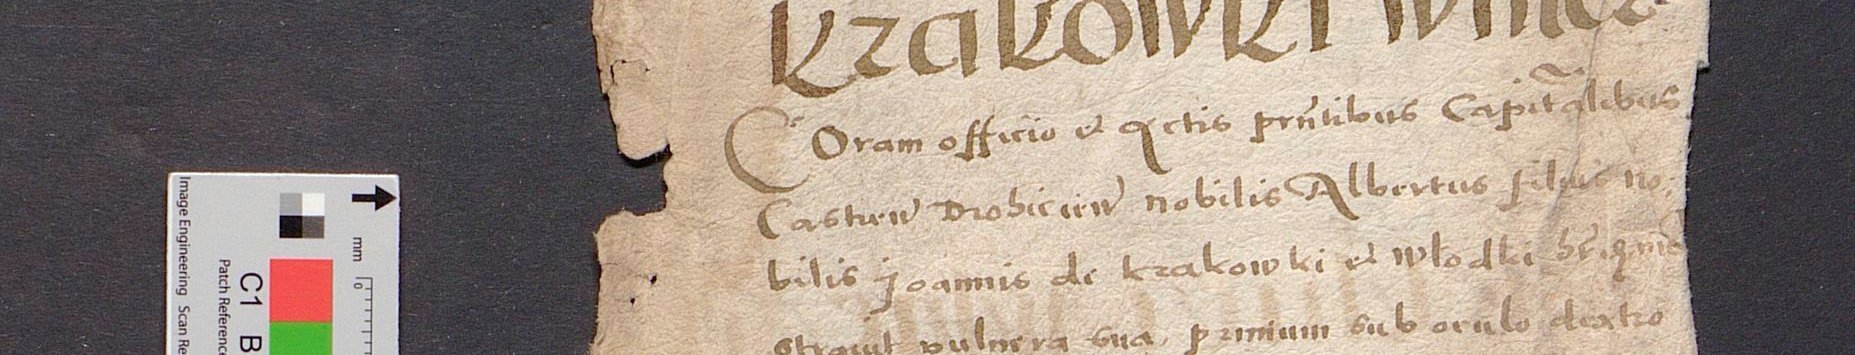 krakowki
Coram officio et actis pn̄tibus Capit̄alibus
Castren̄ Drohicien̄ nobilis Albertus filius no:
bilis Joannis de krakowki et włodki
straiut vulnera sua, primum sub oculo dextro
Image Engineering Scan Re
Patch Reference
C1 B
mm
10